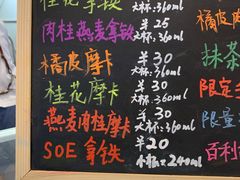 桂花拿铁 大杯:360ml
肉桂燕麦拿铁 ¥25
大杯:360ml
橘皮摩卡 ¥30
大杯:360ml
桂花摩卡 ¥30
大杯:360ml
燕麦肉桂摩卡 ¥30
大杯:360ml
SOE 拿铁 ¥20
小杯:240ml
橘皮
抹茶
限定
限量
百利